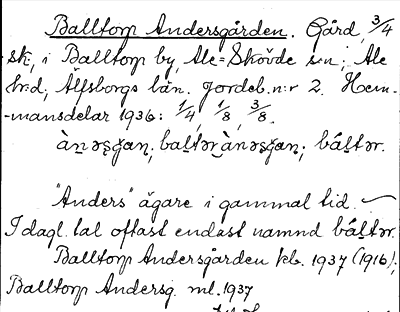 Balltorp Andersgården. Gård, 3/4
sk, i Balltorp by, Ale=Skövde sn; Ale
hrd; Älfsborgs län. Jordeb.n:r 2. Hem-
-mansdelar 1936: 1/4, 1/8, 3/8.
"Anders" ägare i gammal tid. –
I dagl. tal oftast endast namnd báltər.
Balltorp Andersgården kb. 1937 (1916);
Balltorp Andersg. ml. 1937